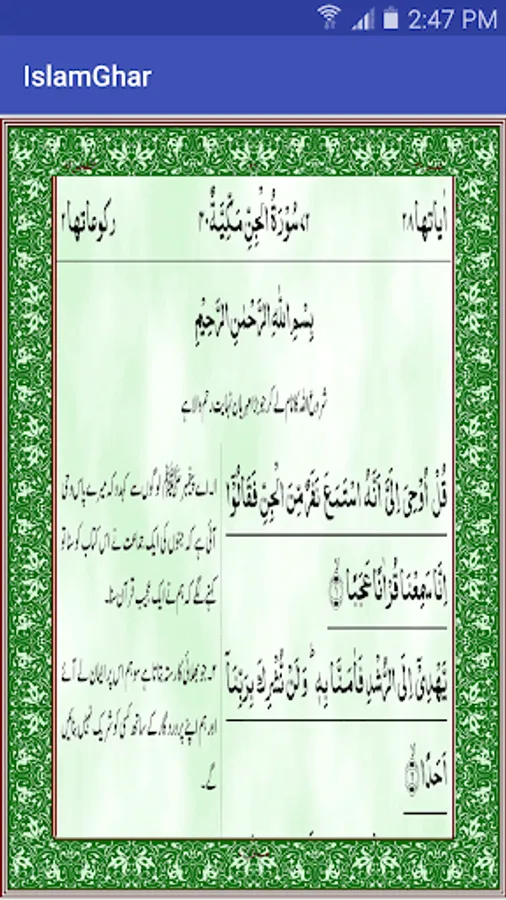 2:47 PM
IslamGhar
اٰیاتھا ۲۸ ۷۲ سُوْرَةُ الْجِنِّ مَكِّيَّةٌ ۴۰ رکوعاتھا ۲
بِسْمِ اللّٰهِ الرَّحْمٰنِ الرَّحِيْمِ
شروع اللہ کا نام لے کر جو بڑا مہربان نہایت رحم والا ہے
قُلْ اُوْحِيَ اِلَيَّ اَنَّهُ اسْتَمَعَ نَفَرٌ مِّنَ الْجِنِّ فَقَالُوْٓا
اِنَّا سَمِعْنَا قُرْاٰنًا عَجَبًا ۙ۱
يَّهْدِيْٓ اِلَى الرُّشْدِ فَاٰمَنَّا بِهٖ ؕ وَلَنْ نُّشْرِكَ بِرَبِّنَآ
اَحَدًا ۙ۲
۱۔ اے پیغمبر ﷺ لوگوں سے کہدو کہ میرے پاس وحی
آئی ہے کہ جنوں کی ایک جماعت نے اس کتاب کو سنا تو
کہنے لگے کہ ہم نے ایک عجیب قرآن سنا۔
۲۔ جو بھلائی کا رستہ بتاتا ہے سو ہم اس پر ایمان لے آئے
اور ہم اپنے پروردگار کے ساتھ کسی کو شریک نہیں بنائیں
گے۔